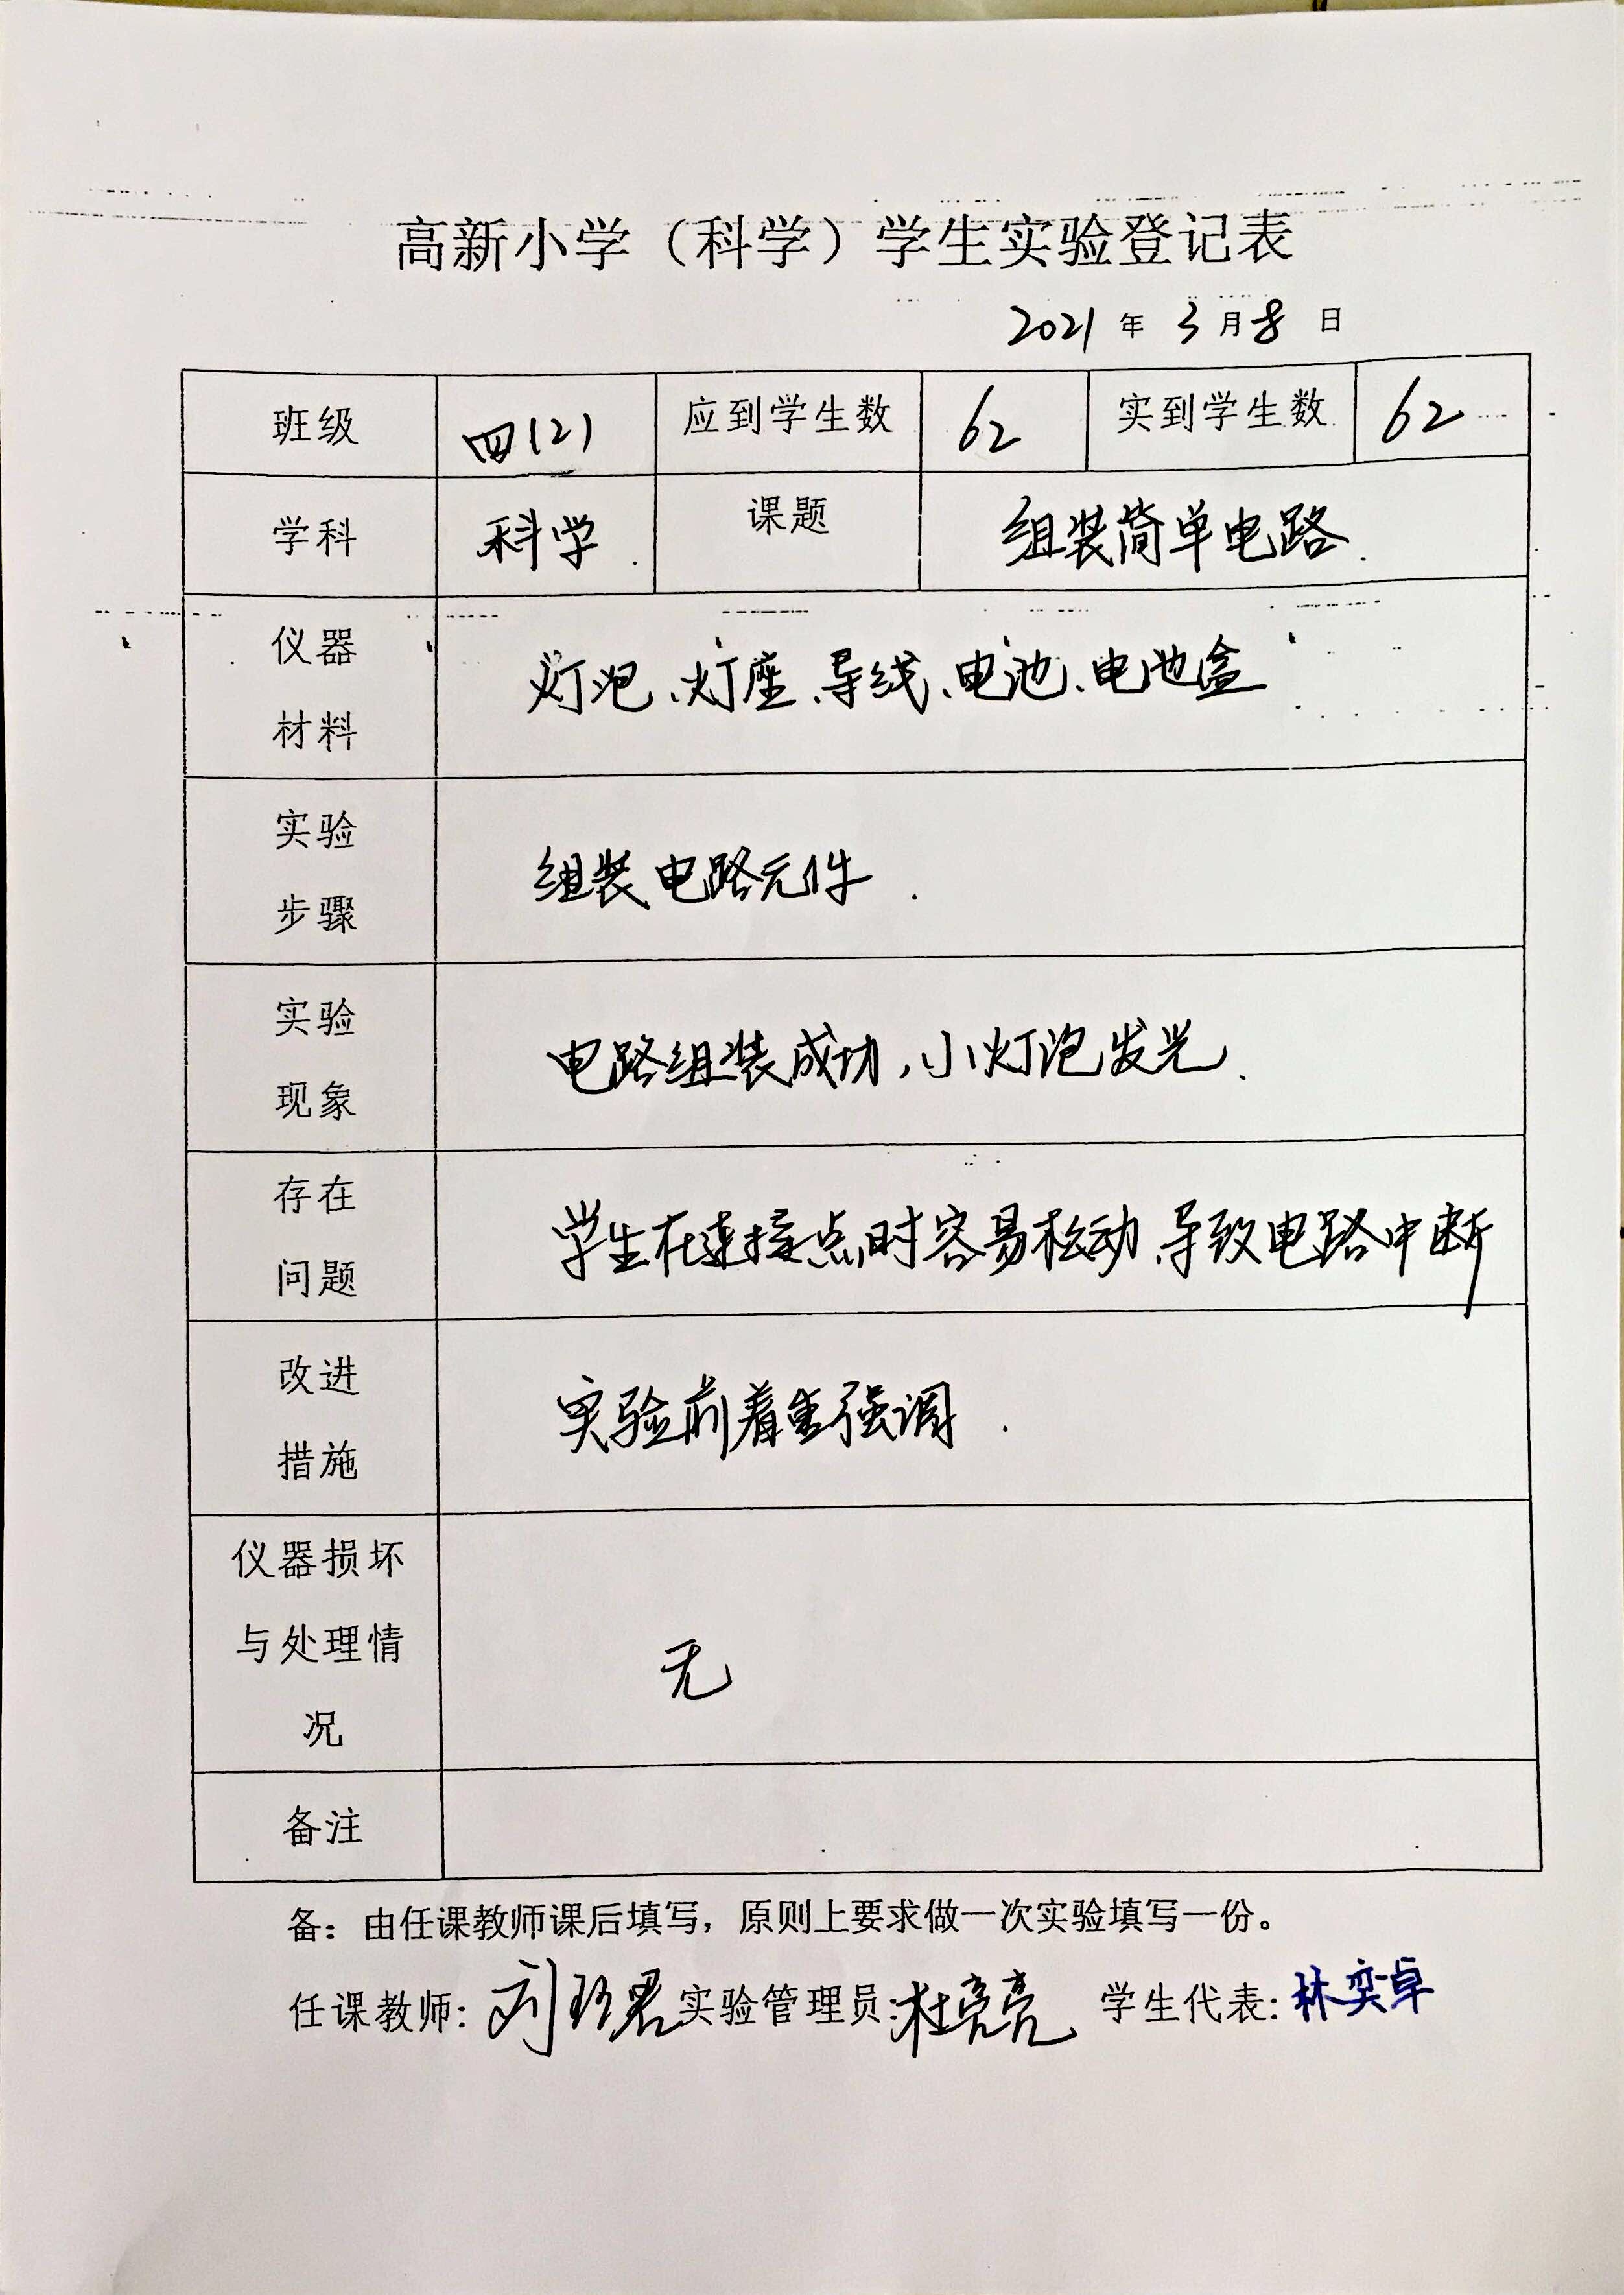 高新小学（科学）学生实验登记表
2021 年 3 月 8 日
班级 四(2) 应到学生数 62 实到学生数 62
学科 科学 课题 组装简单电路.
仪器
材料
灯泡、灯座、导线、电池、电池盒
实验
步骤
组装电路元件.
实验
现象
电路组装成功,小灯泡发光.
存在
问题
学生在连接点时容易松动、导致电路中断
改进
措施
实验前着重强调.
仪器损坏
与处理情
况
无
备注
备：由任课教师课后填写，原则上要求做一次实验填写一份。
任课教师: 刘 君 实验管理员: 杜亮亮 学生代表: 林奕卓